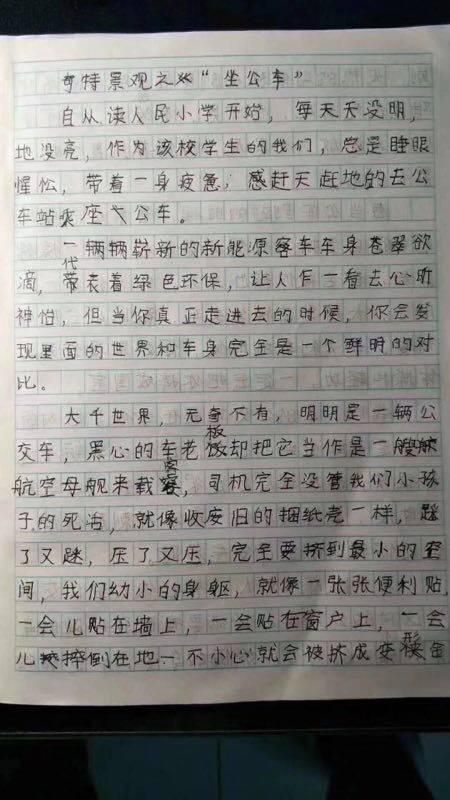 奇特景观之"坐公车"
自从读人民小学开始，每天天没明，
地没亮，作为该校学生的我们，总是睡眼
惺忪，带着一身疲惫，感赶天赶地的去公
车站乘座公车。
一辆辆崭新的新能源客车车身苍翠欲
滴，代表着绿色环保，让人乍一看去心旷
神怡，但当你真正走进去的时候，你会发
现里面的世界和车身完全是一个鲜明的对
比。
大千世界，无奇不有，明明是一辆公
交车，黑心的车老板却把它当作是一艘
航空母舰来载客，司机完全没管我们小孩
子的死活，就像收废旧的捆纸壳一样，踩
了又踩，压了又压，完全要挤到最小的空
间，我们幼小的身躯，就像一张张便利贴，
一会儿贴在墙上，一会贴在窗户上，一会
儿摔倒在地一不小心就会被挤成变形金